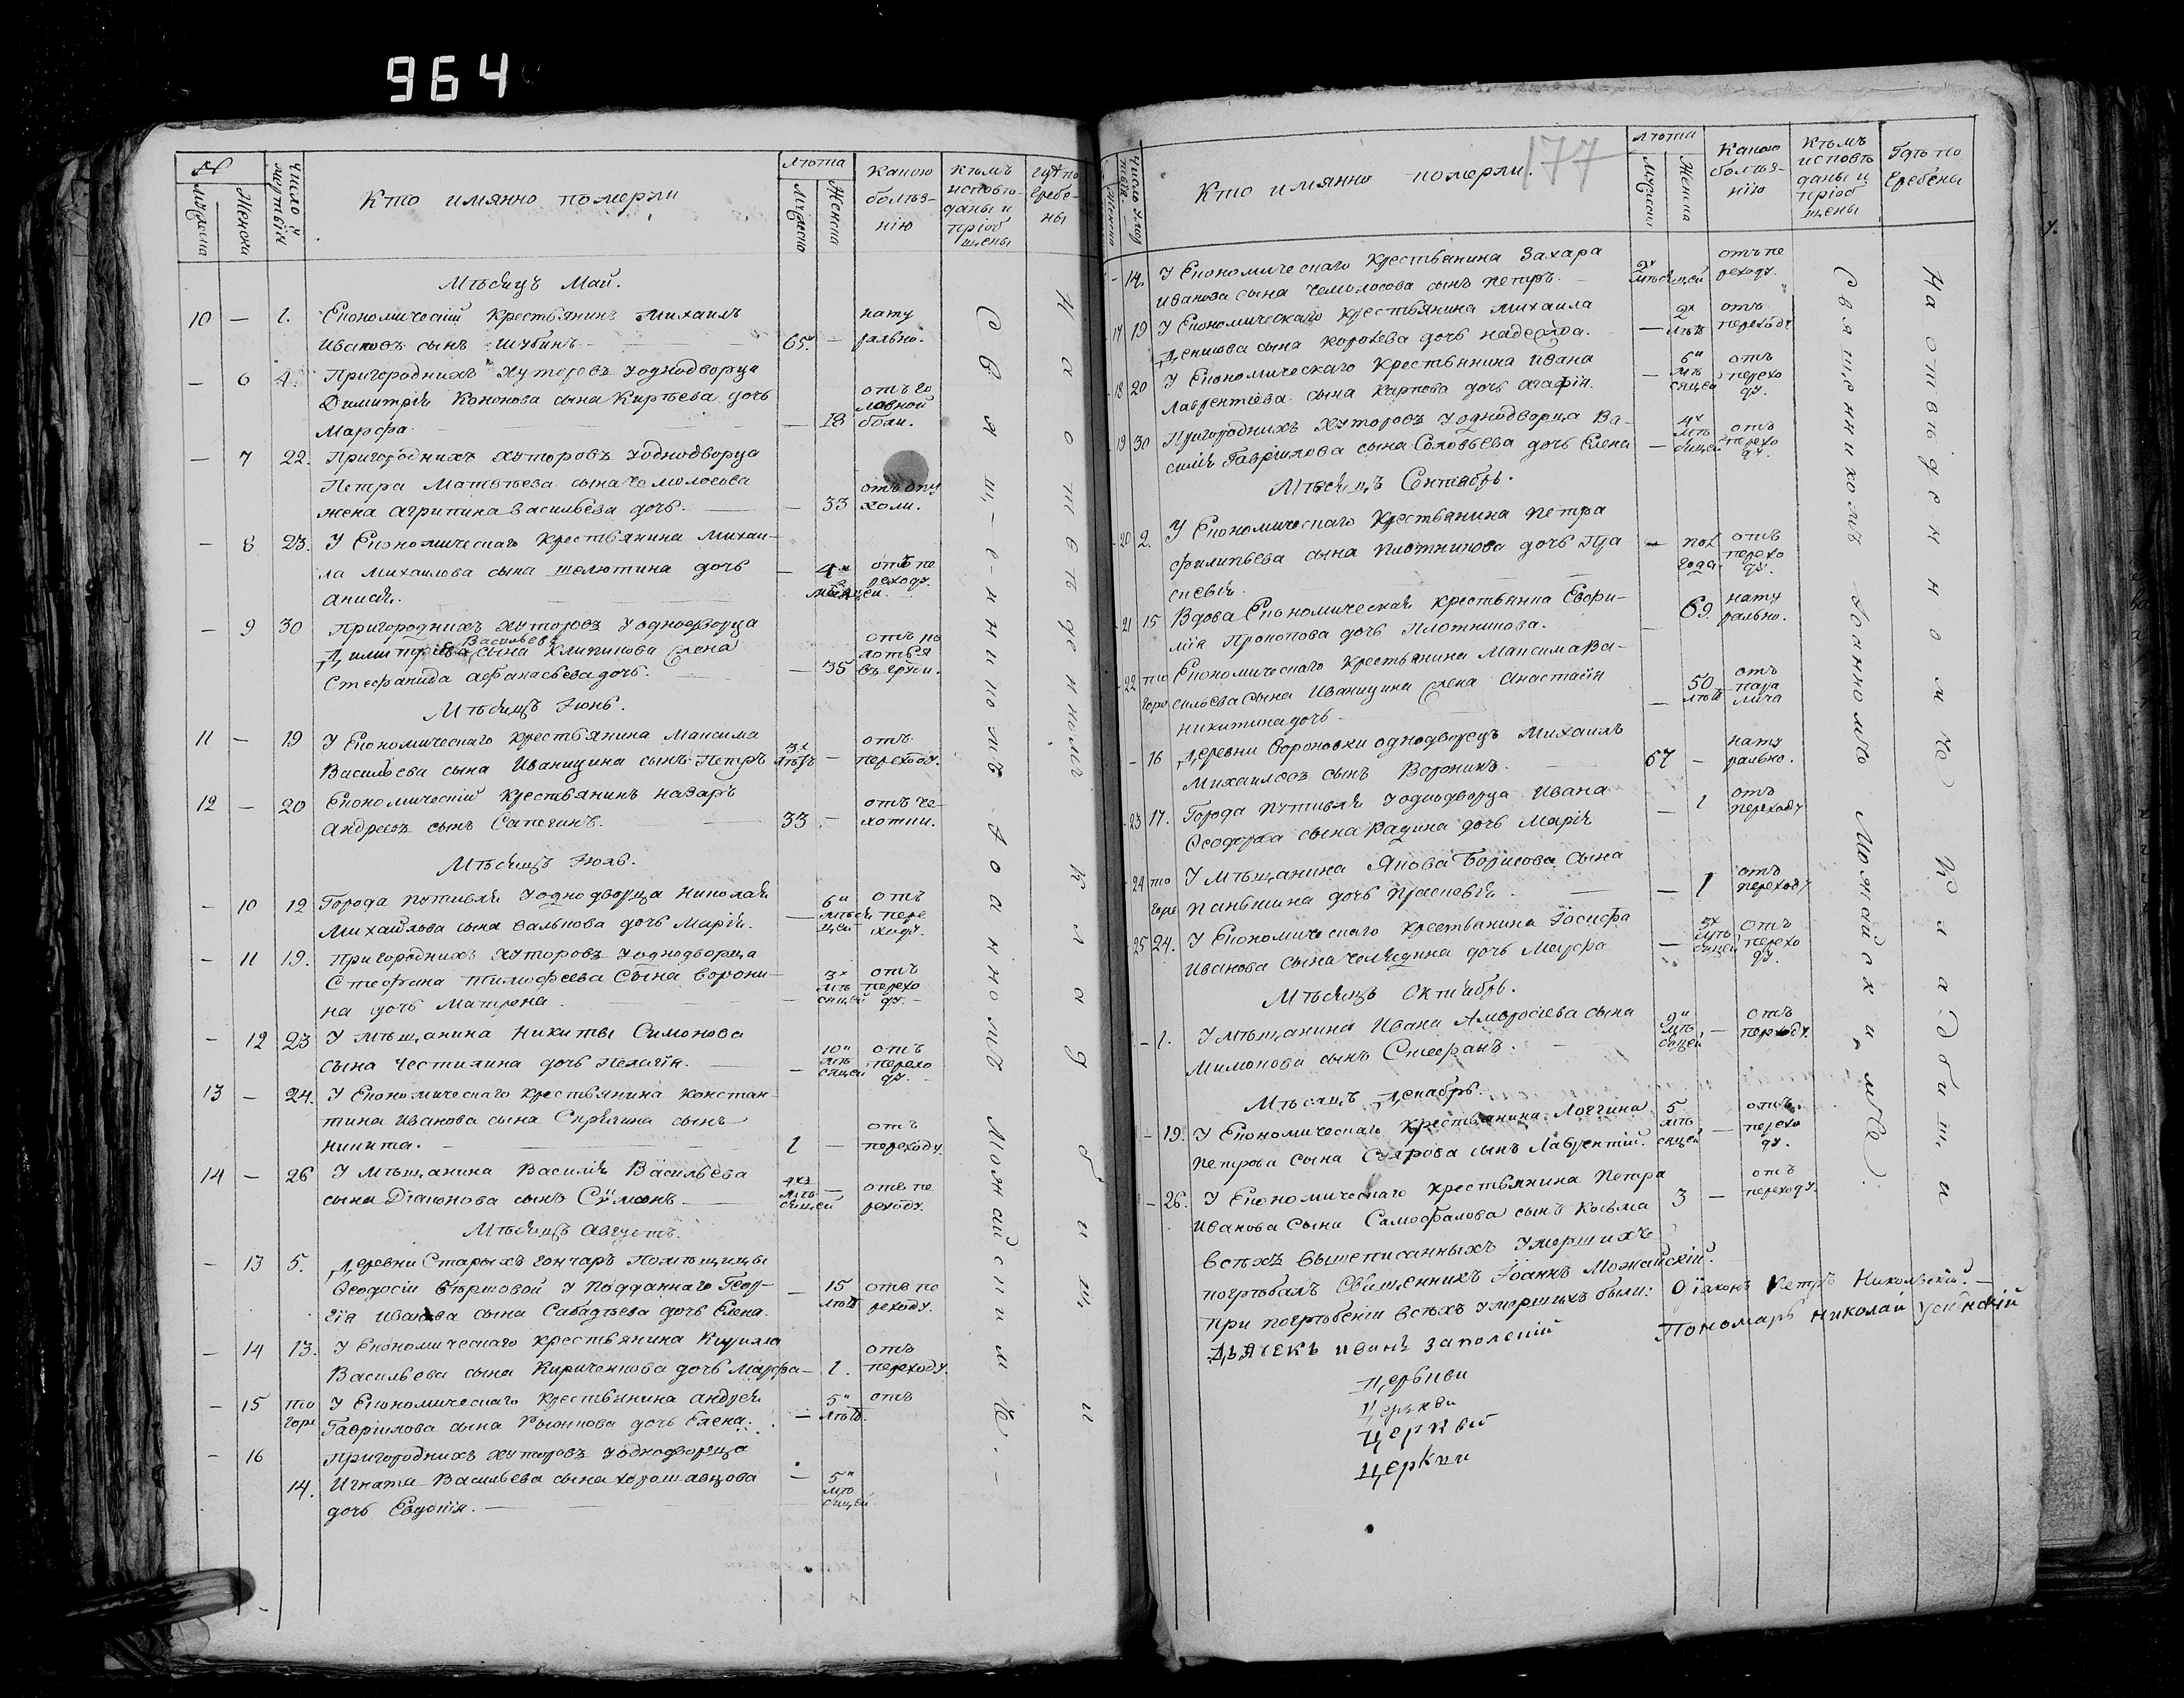 964
№
Мужска
Женски
Число У
мертвій
Кто имянно померли
лѣта
Мужеска
Женска
Какою
болѣз-
нію
кѣмъ
исповѣ-
даны и
пріоб
щены
гдѣ по
гребе-
ны
Мѣсяцъ Май.
10 — 1. Економическій крестьянинъ Михаилъ
Ивановъ сынъ Шубинъ 65. — нату
рально.
— 6 4. Пригороднихъ хуторовъ Уоднодворца
Димитрія Кононова сына Кирѣева дочь
Марфа. — 18 отъ го
ловной
боли.
— 7 22. Пригороднихъ хуторовъ Уоднодворца
Петра Матвѣева сына Чемолосова
жена Агрипина Васильева дочь. — 33 отъ опу
холи.
— 8 23. У Економическаго крестьянина Михаи-
ла Михаилова сына Шелютина дочь
Анисія. — 4 мѣсяцей. отъ пе
реходу.
— 9 30 Пригороднихъ хуторовъ Уоднодворца
Димитрія Васильева сына Клипикова жена
Стефанида Афанасьева дочь. — 35
Мѣсяцъ Іюнь.
11 — 19 У Економическаго крестьянина Максима
Васильева сына Иваницина сынъ Петръ 3х лѣтъ — отъ
переходу.
12 — 20 Економическій крестьянинъ Назаръ
Андреевъ сынъ Сапегинъ. 33 — отъ че-
хотки.
Мѣсяцъ Іюль.
— 10 12 Города Путивля Уоднодворца Николая
Михайлова сына Салькова дочь Марія. — 6 мѣся
цей отъ
пере
ходу.
— 11 19. Пригороднихъ хуторовъ Уоднодворца
Стефана Тимофеева сына Ворони-
на дочь Матрона. — 3х мѣ
сяцей отъ
перехо
ду.
— 12 23 У мѣщанина Никиты Симонова
сына Честилина дочь Пелагія. — 10 мѣ
сяцей отъ
перехо
ду.
13 — 24. У Економическаго крестьянина Констан-
тина Иванова сына Скрягина сынъ
Никита. 1 — отъ
переходу.
14 — 26 У мѣщанина Василія Васильева
сына Діаконова сынъ Сѵмеонъ мѣ
сяцей — отъ пе
реходу.
Мѣсяцъ Августъ.
— 13 5. Деревни Старыхъ Гончаръ Помѣщицы
Ѳеодосіи Вѣршовой У подданнаго Геор-
гія Иванова сына Сабадѣева дочь Елена. — 15 лѣтъ отъ пе
реходу.
— 14 13. У Економическаго крестьянина Кирилла
Васильева сына Кириченкова дочь Марфа — 1. отъ
переходу.
— 15 то
гоже У Економическаго крестьянина Андрея
Гавріилова сына Рыжкова дочь Елена. — 5 лѣтъ. отъ
— 16 Пригороднихъ хуторовъ Уоднодворца
14. Игната Васильева сына Хорошавцова
дочь Евдокія. — 5 мѣ
сяцей
Священникомъ Іоанномъ Можайскимъ.
На отведенномъ кладбищи
177
Женска
Число Умер
твій
Кто имянно померли.
лѣта
Мужски
Женска
Какою
болѣз-
нію
Кѣмъ
исповѣ
даны и
пріоб
щены
Гдѣ по
гребены
— 14. У Економическаго крестьянина Захара
Иванова сына Чемолосова сынъ Петръ. 2х
мѣсяцей отъ пе
реходу.
17 19 У Економическаго крестьянина Михаила
Денисова сына Королева дочь Надежда. — 2х
лѣтъ отъ
переходу
18 20 У Економическаго крестьянина Ивана
Лаврентіева сына Карпова дочь Агафія. — 6
мѣ
сяцей отъ
перехо
ду.
19 30 Пригороднихъ хуторовъ Уоднодворца Ва-
силія Гавріилова сына Соловьева дочь Елена — 4
мѣ
сяцей отъ
перехо
ду.
Мѣсяцъ Сентябрь.
20 2. У Економическаго крестьянина Петра
Филипьева сына Плотникова дочь Пра
скевія. — пол
года отъ
перехо
ду.
21 15 Вдова Економическая крестьянка Евфи-
мія Прокопова дочь Плотникова. — 69. нату
рально.
22 то
гоже Економическаго крестьянина Максима Ва-
сильева сына Иваницина жена Анастасія
Никитина дочь — 50
лѣтъ отъ
пара
лича
— 16 Деревни Вороновки однодворецъ Михаилъ
Михаиловъ сынъ Воронинъ. 67 — нату
рально.
23 17. Города Путивля Уоднодворца Ивана
Ѳеодорова сына Вадина дочь Марія — 1 отъ
переходу
24 то
гоже У мѣщанина Якова Борисова сына
Паньшина дочь Праскевія. — 1 отъ
переходу
25 24. У Економическаго крестьянина Іосифа
Иванова сына Челядина дочь Марфа — 5х
мѣ
сяцей отъ
перехо
ду.
Мѣсяцъ Октябрь.
— 1. У мѣщанина Ивана Амвросіева сына
Мимонова сынъ Стефанъ. 9
мѣ
сяцей — отъ
переходу.
Мѣсяцъ Декабрь.
— 19. У Економическаго крестьянина Логгина
Петрова сына сынъ Лаврентій. 5
мѣ
сяцей — отъ
перехо
ду.
— 26. У Економическаго крестьянина Петра
Иванова сына Самофалова сынъ Косьма 3 — отъ
переходу.
Священникомъ Іоанномъ Можайскимъ.
На отведенномъ кладбищи
Всѣхъ вышеписанныхъ Умершихъ
погрѣбалъ Священникъ Іоаннъ Можайскій.
при погрѣбеніи всѣхъ Умершихъ были: Діаконъ Петръ Никольскій.
Дьячекъ Иванъ Заполскій Пономарь Николай Успѣнскій
Церькви
Церькви
Церквы
Церкви